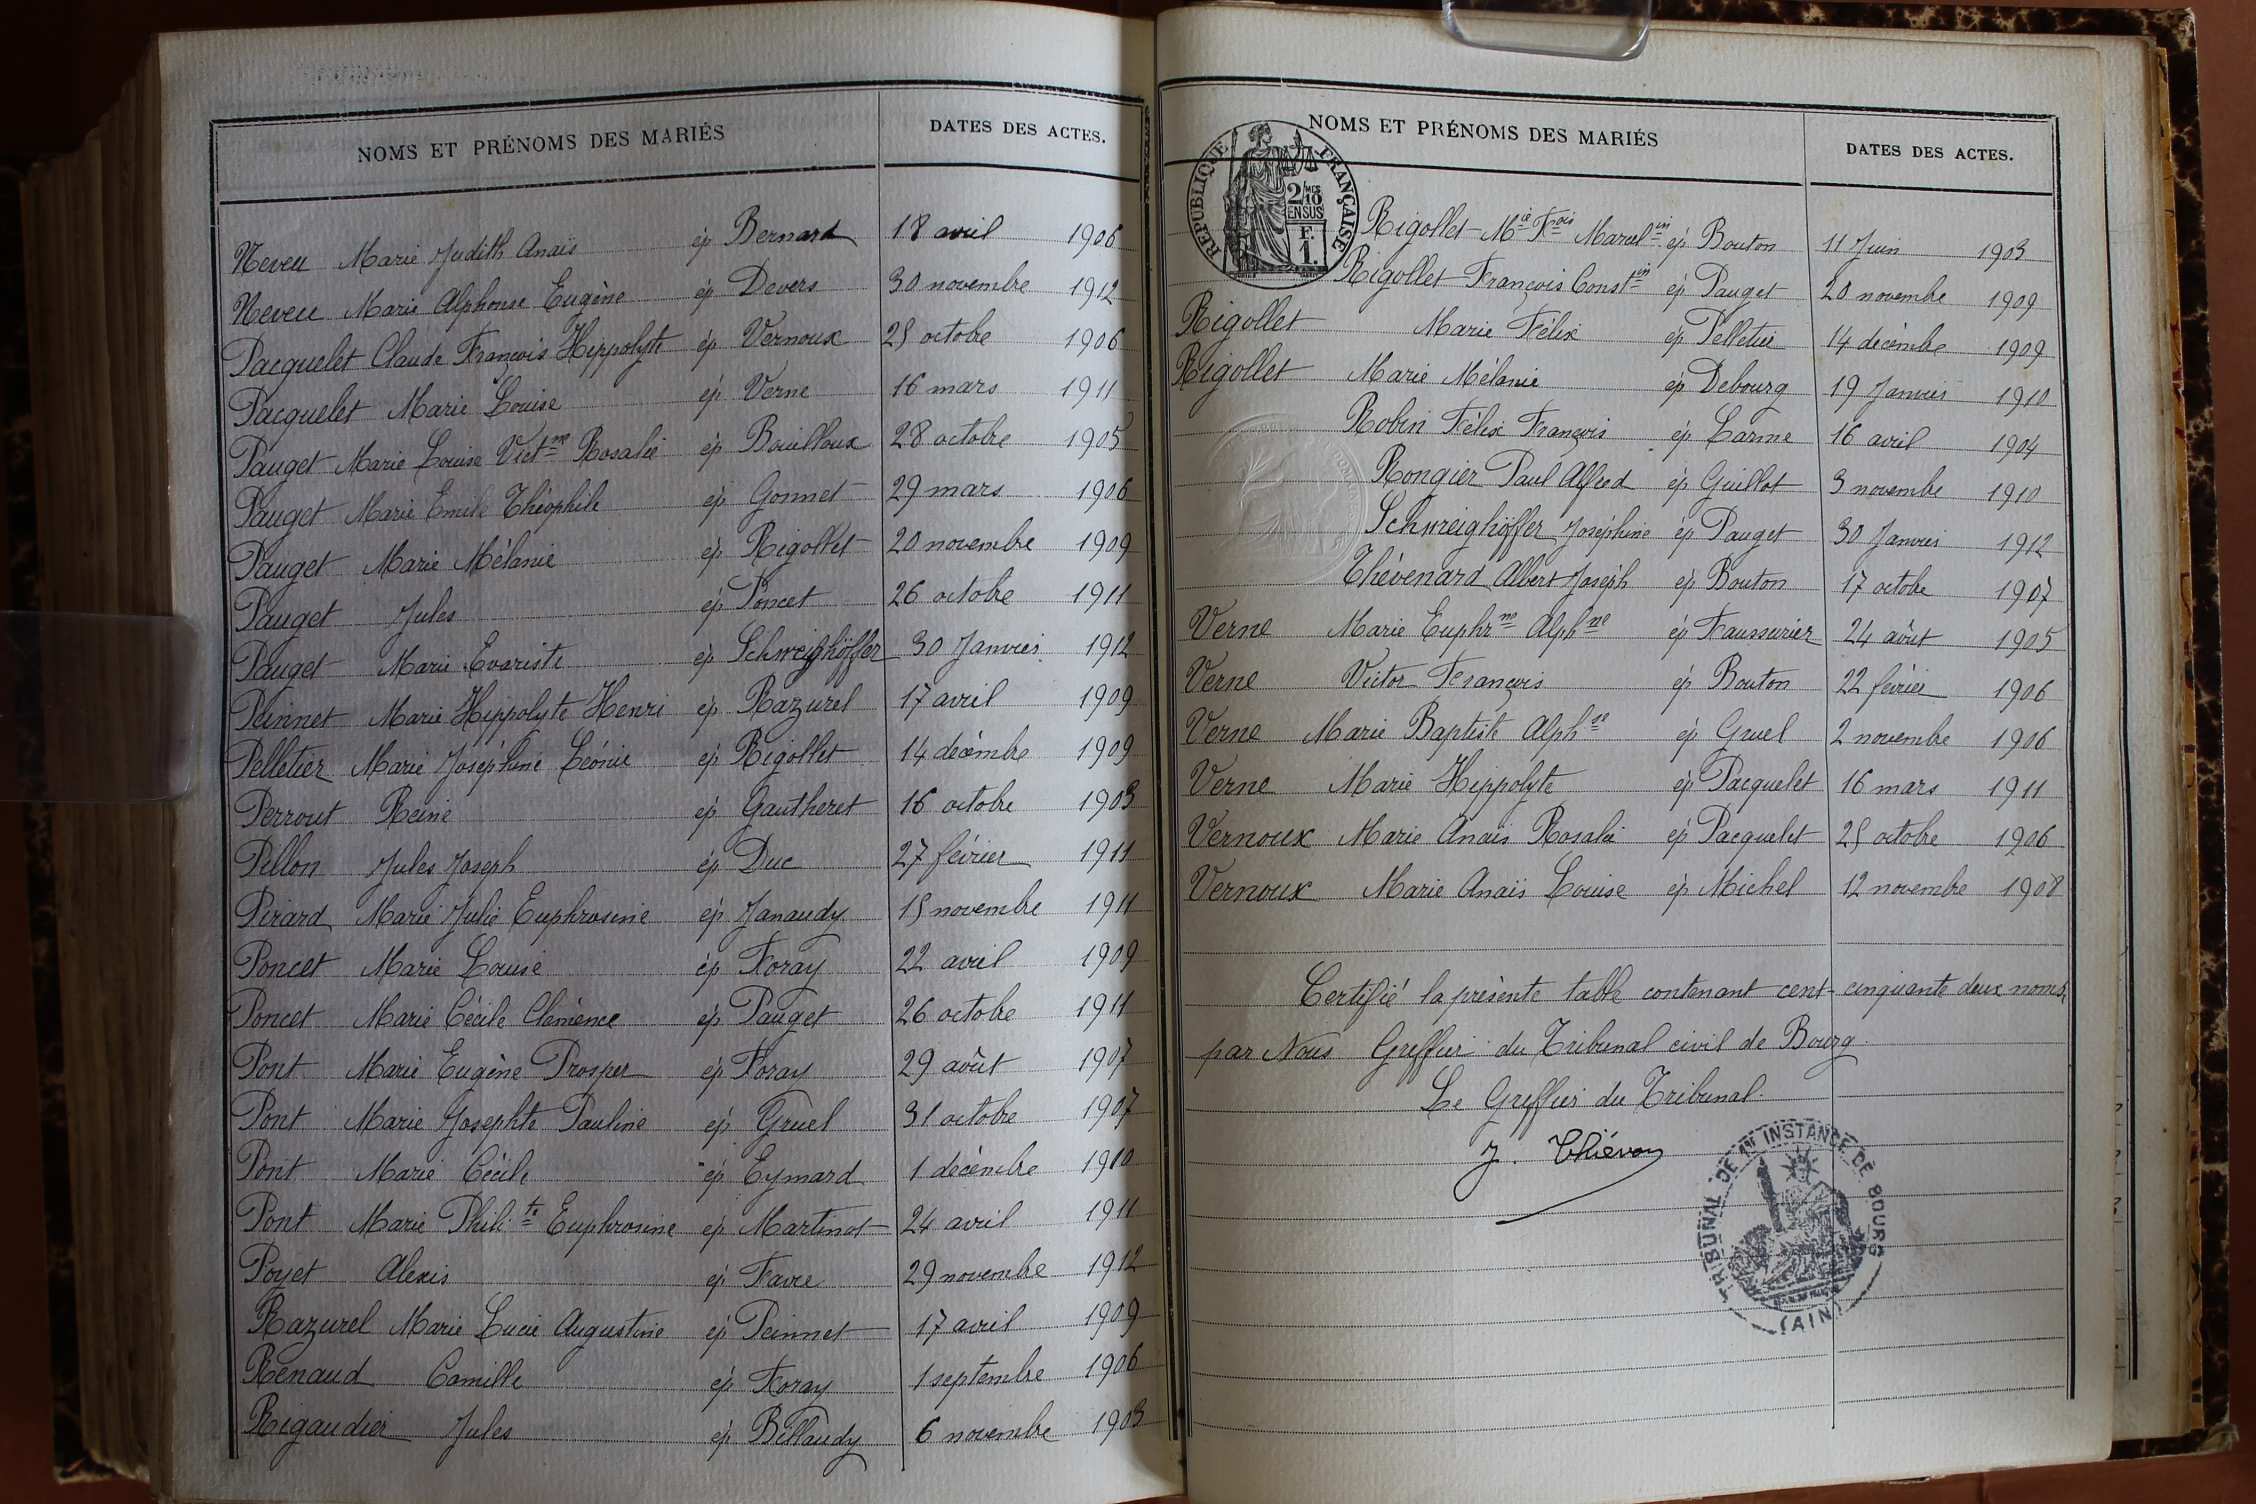 NOMS ET PRÉNOMS DES MARIÉS DATES DES ACTES.
Neveu Marie Judith Anaïs ép Bernard 18 avril 1906
Neveu Marie Alphonse Eugène ép Devers 30 novembre 1912
Pacquelet Claude François Hippolyte ép Vernoux 25 octobre 1906
Pacquelet Marie Louise ép Verne 16 mars 1911
Pauget Marie Louise Victne Rosalie ép Bouilloux 28 octobre 1905
Pauget Marie Emile Théophile ép Gonnet 29 mars 1906
Pauget Marie Mélanie ép Rigollet 20 novembre 1909
Pauget Jules ép Poncet 26 octobre 1911
Pauget Marie Evariste ép Schweighöffer 30 Janvier 1912
Peinnet Marie Hippolyte Henri ép Razurel 17 avril 1909
Pelletier Marie Joséphine Léonie ép Rigollet 14 decémbre 1909
Perrout Reine ép Gautheret 16 octobre 1903
Pellon Jules Joseph ép Duc 27 février 1911
Pirard Marie Julie Euphrosine ép Janaudy 15 novembre 1911
Poncet Marie Louise ép Foray 22 avril 1909
Poncet Marie Cécile Clémence ép Pauget 26 octobre 1911
Pont Marie Eugène Prosper ép Foray 29 août 1907
Pont Marie Josephte Pauline ép Gruel 31 octobre 1907
Pont Marie Cécile ép Eymard 1 decémbre 1910
Pont Marie Phili.te Euphrosine ép Martinot 24 avril 1911
Poyet Alexis ép Favre 29 novembre 1912
Razurel Marie Lucie Augustine ép Peinnet 17 avril 1909
Renaud Camille ép Foray 1 septembre 1906
Rigaudier Jules ép Billaudy 6 novembre 1903
NOMS ET PRÉNOMS DES MARIÉS DATES DES ACTES.
RÉPUBLIQUE FRANÇAISE
2/10 MES
EN SUS
F.
1.
Rigollet Mie Fois Marcelin ép Bouton 11 Juin 1903
Rigollet François Constin ép Pauget 20 novembre 1909
Rigollet Marie Félix ép Pelletier 14 décembre 1909
Rigollet Marie Mélanie ép Debourg 19 Janvier 1910
Robin Félix François ép Larme 16 avril 1904
Rongier Paul Alfred ép Guillot 3 novembre 1910
Schweighöffer Joséphine ép Pauget 30 Janvier 1912
Thévenard Albert Joséph ép Bouton 17 octobre 1907
Verne Marie Euphrne Alphne ép Faussurier 24 août 1905
Verne Victor François ép Bouton 22 février 1906
Verne Marie Baptiste Alphse ép Gruel 2 novembre 1906
Verne Marie Hippolyte ép Pacquelet 16 mars 1911
Vernoux Marie Anaïs Rosalie ép Pacquelet 25 octobre 1906
Vernoux Marie Anaïs Louise ép Michel 12 novembre 1908
Certifié la présente table contenant cent cinquante deux noms,
par Nous Greffier du Tribunal civil de Bourg.
Le Greffier du Tribunal.
TRIBUNAL DE 1RE INSTANCE DE BOURG
(AIN)